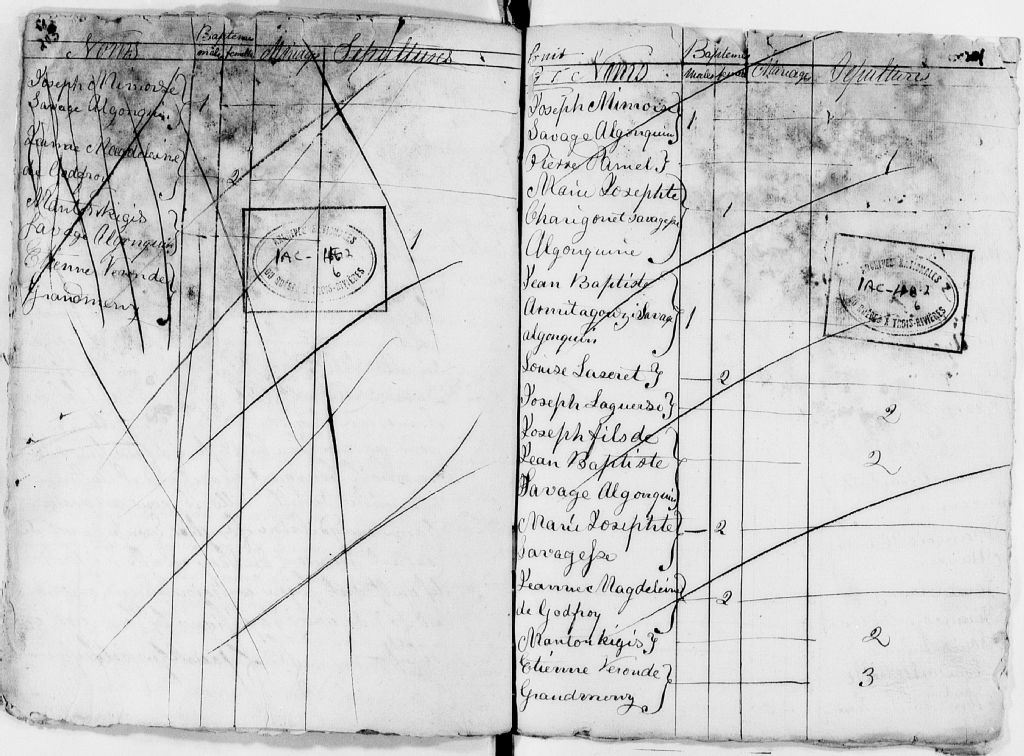 Noms
Baptême
mâle femelle
Mariage Sépultures
Joseph Mimoise
Savage Algonquin 1
Jeanne Magdeleine
de Godefroy 2
Mantoukigis
Savage Algonquin 1
Etienne Veronde
Grandmeny
ARCHIVES NATIONALES
1AC-
6
DU QUÉBEC À TROIS-RIVIÈRES
Noms
Baptême
mâles Mariage Sépultures
Joseph Mimoise
Savage Algonquin 1
Pierre Rimel 1
Marie Josephte
Charigonot Savagesse 1
Algonquine
Jean Baptiste
Armitagouzi Savage 1
algonquin
Louise Luseret 2
Joseph Laguerse 2
Joseph fils de
Jean Baptiste 2
Savage Algonquin
Marie Josephte 2
Savagesse
Jeanne Magdeleine
de Godfroy 2
Mantoukigis 2
Etienne Veronde 3
Grandmeny
ARCHIVES NATIONALES
1AC-
6
DU QUÉBEC À TROIS-RIVIÈRES